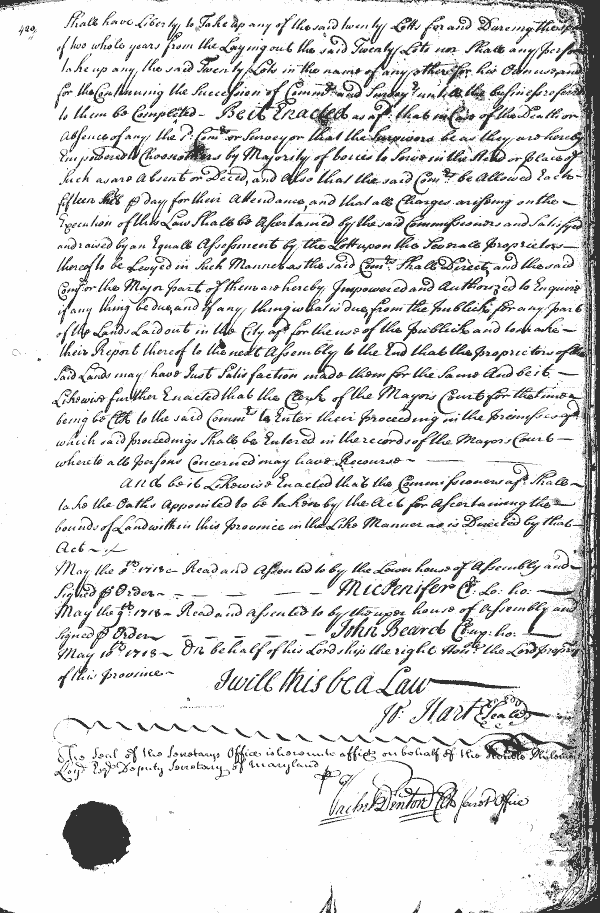 420
Shall have Liberty to Take up any of the said twenty Lotts for and Dureing the
of two whole years from the Laying out the said Twenty Lots nor Shall any person
take up any the said Twenty Lots in the name of any other for his Own use and
for the Continuing the Succession of Comm.rs and Survey.r untill the business referred
to them be Compleated — Be it Enacted as afs.d that in Case of the Death or
Absence of any the s.d Com.rs or Surveyor that the Survivors be as they are hereby
Empowered to Choose others by Majority of Voices to Serve in the Stead or place of
Such as are Absent or Deced, and Also that the said Com.rs be Allowed Each
fifteen Shill p day for their Attendance, and that all Charges arising on the
Execution of this Law Shall be Ascertained by the said Commissioners and Satisfyed
and raised by an Equall Assessment by the Lott upon the Severall Proprietors
thereof to be Levyed in Such Manner as the said Com.rs Shall Direct, and the said
Com.rs or the Major part of them are hereby Impowered and Authorized to Enquire
if any thing be due, and if any thing what is due from the Publick for any part
of the Lands Laid out in the City afs.d for the use of the Publick and to make
their Report thereof to the next Assembly to the End that the Proprietors of the
Said Lands may have Just Satisfaction made them for the Same And be it
Likewise further Enacted that the Clerk of the Mayors Court for the time
being be Clk to the said Comm.rs to Enter their Proceeding in the Premisses
which said proceedings Shall be Entered in the records of the Mayors Court
whereto all persons Concerned may have Recourse
And be it Likewise Enacted that the Commissioners afs.d Shall
take the Oaths Appointed to be taken by the Act for Ascertaining the
bounds of Land within this Province in the Like Manner as is Directed by that
Act
May the 8.th 1718 Read and Assented to by the Lower house of Assembly and
Signed p Order Mic Jenifer Cl. Lo: ho:
May the 9.th 1718 Read and Assented to by the upper house of Assembly and
Signed p Order John Beard Cl up: ho:
May 10.th 1718 On behalf of his Lordship the right Hon.ble the Lord propry
of this Province
I will this be a Law
Jo: Hart Seale
The Seal of the Secretarys Office is hereunto affixt on behalf of the Honoble Philemon
Loyd Esq.r Deputy Secretary of Maryland
p
Vachel Denton Clk Secrets Office